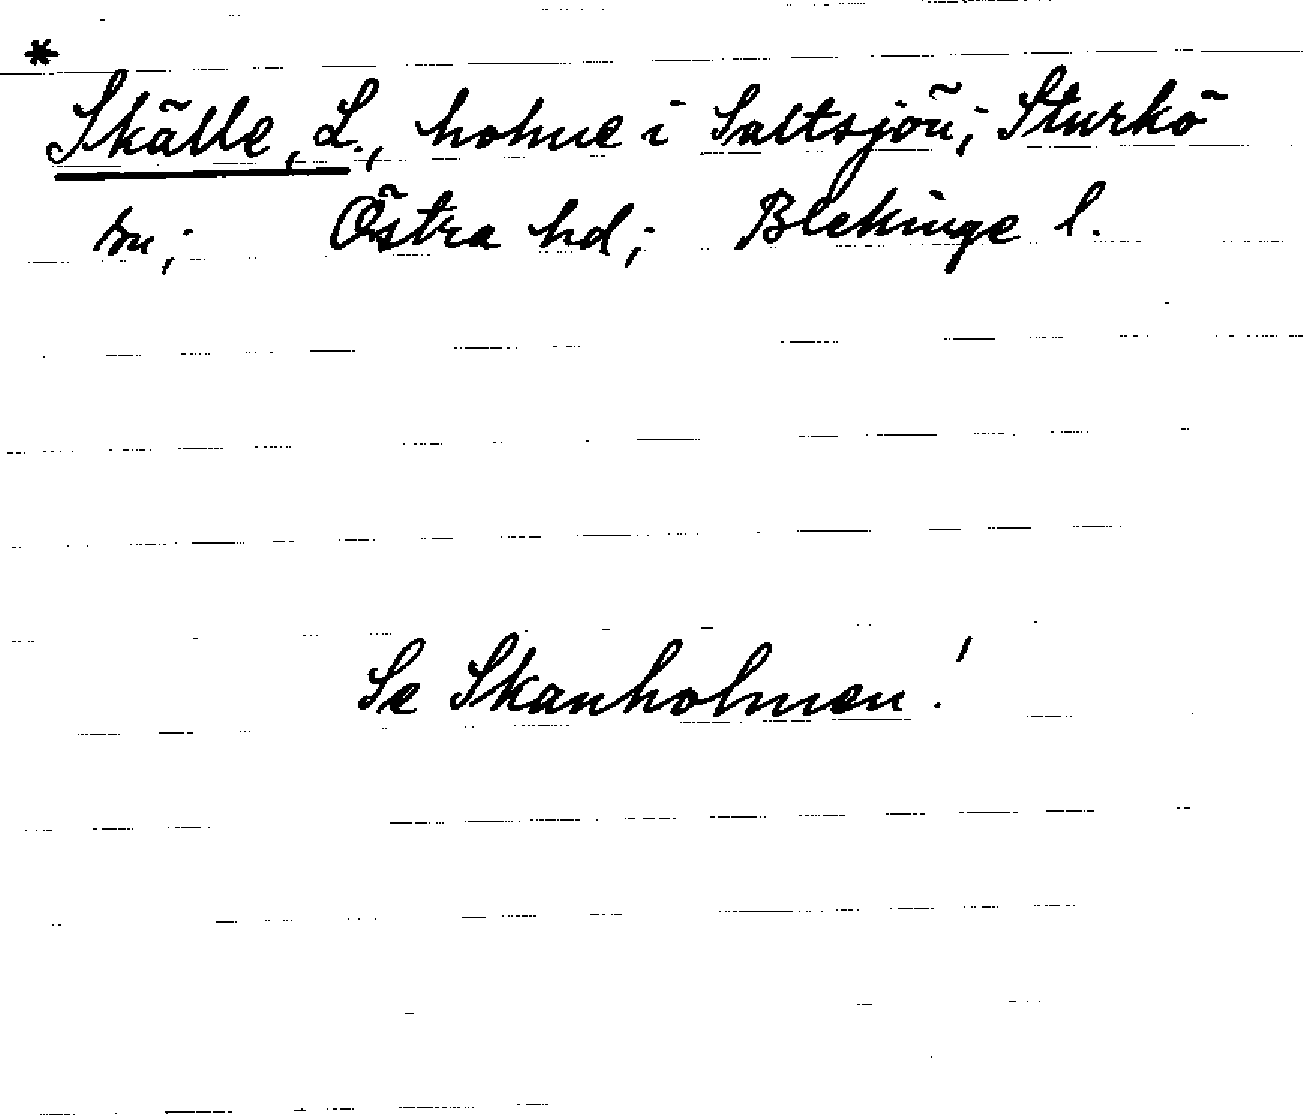 *
Skälle, L., holme i Saltsjön; Sturkö
sn; Östra hd; Blekinge l.
Se Skanholmen!